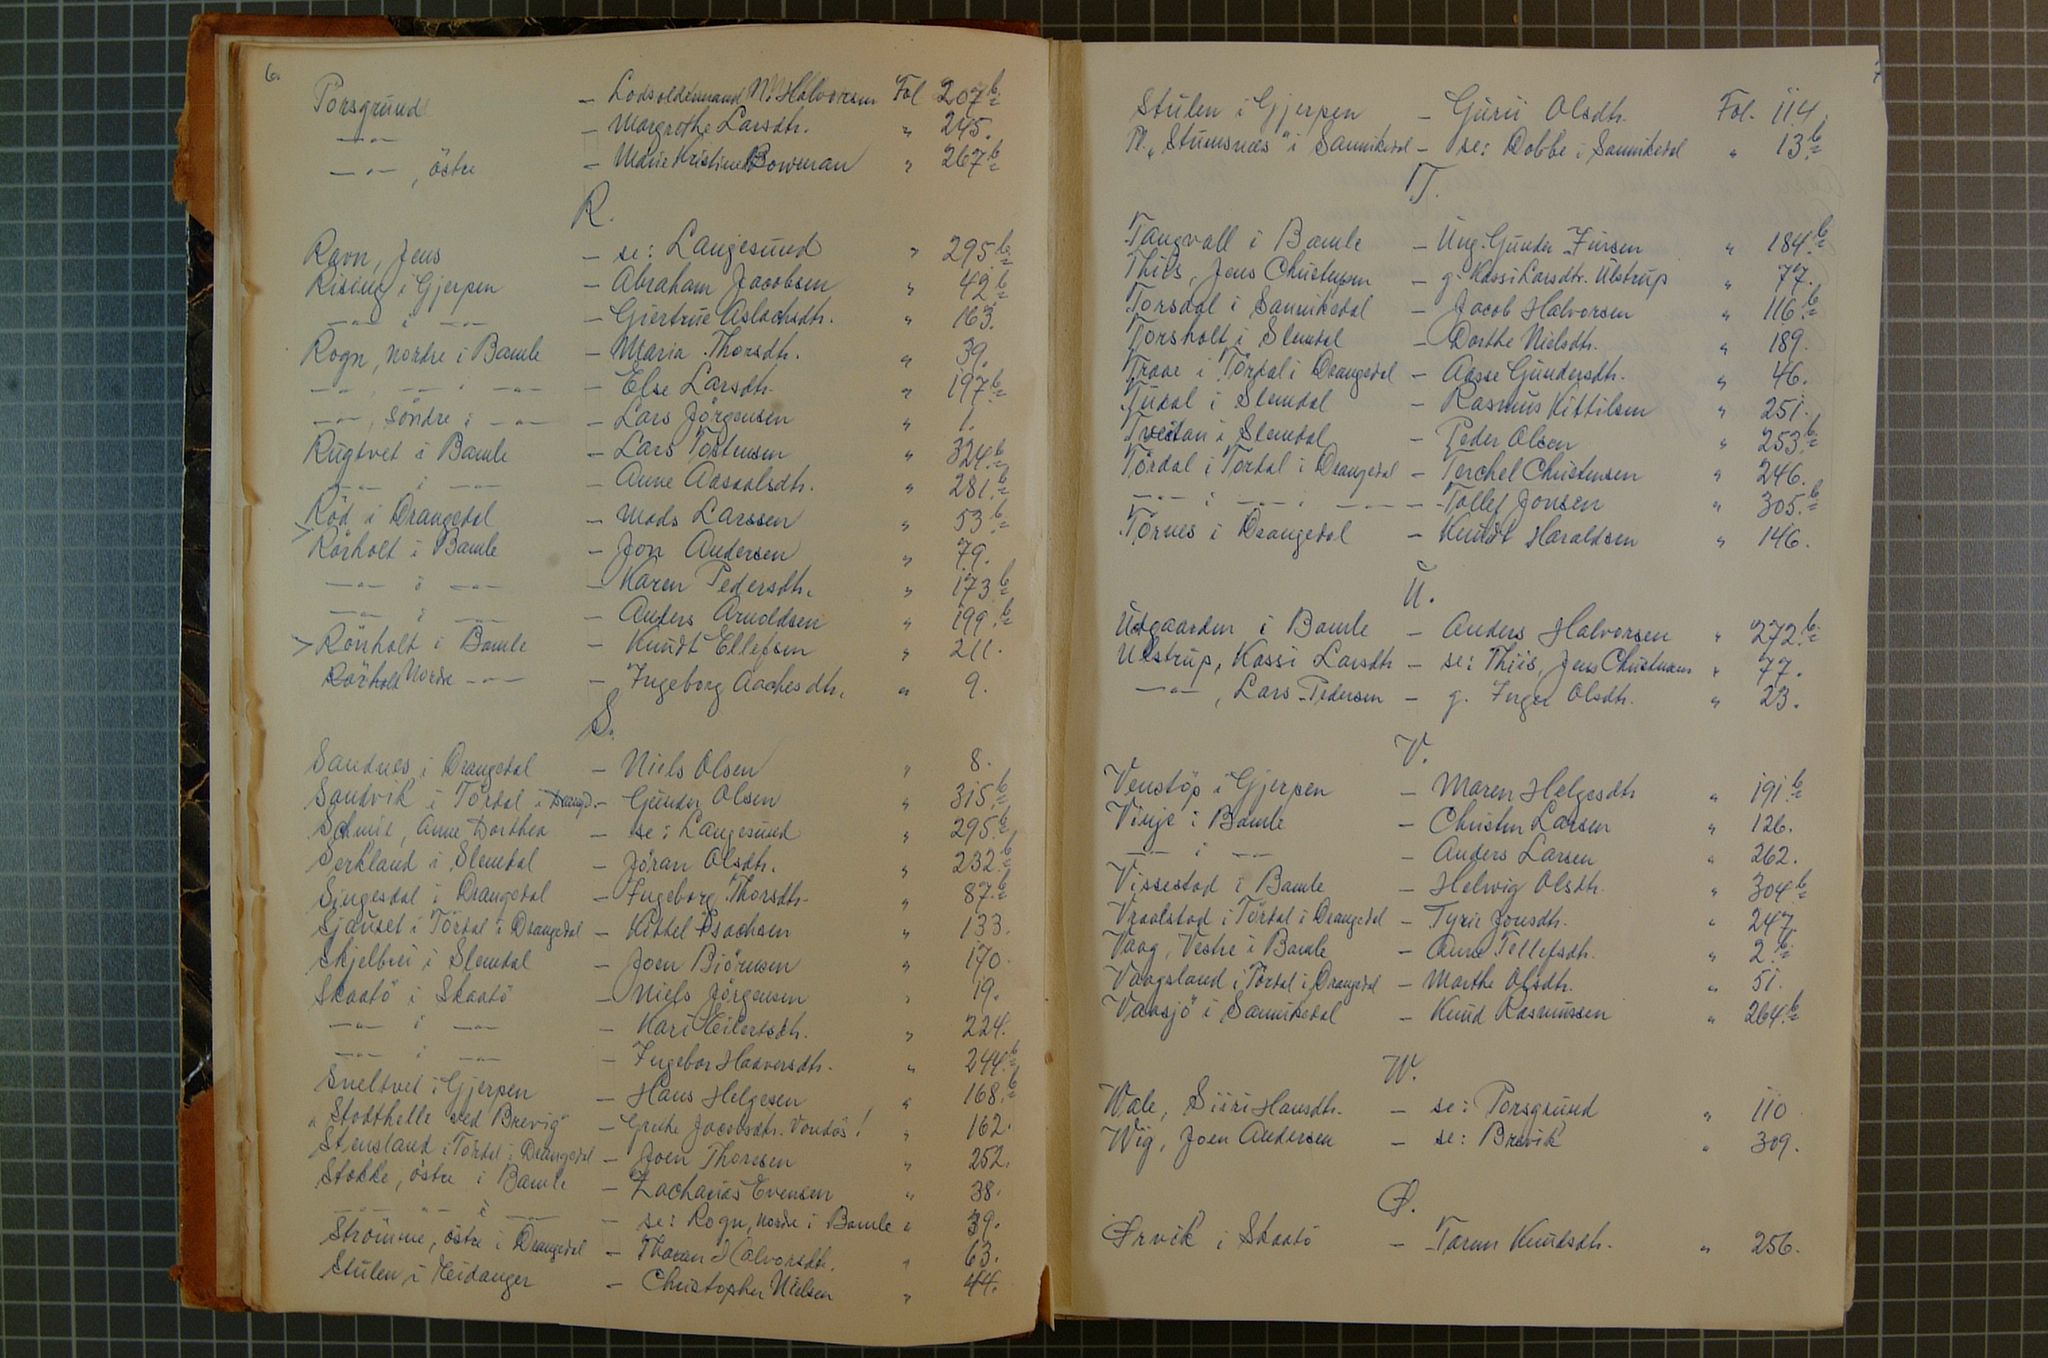 6.
Porsgrund - Lodsoldermand N. Halvorsen Fol 207 b
-"- - Margrethe Larsdtr. " 245.
-"-, östre - Marie Kristine Bowman " 267 b
R.
Ravn, Jens - se: Langesund " 295 b
Rising i Gjerpen - Abraham Jacobsen " 42 b
-"- i -"- - Giertrue Aslachsdtr. " 163.
Rogn, nordre i Bamle - Maria Thorsdtr. " 39.
-"- , -"- i -"- - Else Larsdtr. " 197 b
-"-, söndre i -"- - Lars Jörgensen " 1.
Rugtvet i Bamle - Lars Tostensen " 324 b
-"- i -"- - Anne Aasoulsdtr. " 281 b
Röd i Drangedal - Mads Larssen " 53 b
Rörholt i Bamle - Jon Andersen " 79.
-"- i -"- - Karen Pedersdtr. " 173 b
-"- i -"- - Anders Arnoldsen " 199 b
> Rönholt i Bamle - Knudt Ellefsen " 211.
Rörholt Nordre -"- - Ingeborg Aachesdtr. " 9.
S.
Sandnes i Drangedal - Niels Olsen " 8.
Sandvik i Tördal i Drangd. - Gunder Olsen " 315 b
Schmit, Anne Dorthea - se: Langesund " 295 b
Serkland i Slemdal - Jöran Olsdtr. " 232 b
Singesdal i Drangedal - Ingeborg Thorsdtr. " 87 b
Sjauset i Tördal i Drangedal - Kittel Isachsen " 133.
Skjelbrei i Slemdal - Joen Biörnsen " 170.
Skaatö i Skaatö - Niels Jörgensen " 19.
-"- i -"- - Kari Eilertsdtr. " 224.
-"- i -"- - Ingebor Halvorsdtr. " 244 b
Sneltvet i Gjerpen - Hans Helgesen " 168 b
"Stodthelle ved Brevig" - Grethe Jacobsdtr. Vondös! " 162.
Stensland i Tördal i Drangedal - Joen Thoresen " 252.
Stokke, östre i Bamle - Zacharias Evensen " 38.
-"- -"- i -"- - se: Rogn, nordre i Bamle " 39.
Strömme, östre i Drangedal - Tharan Halvorsdtr. " 63.
Stulen, i Eidanger - Christopher Nielsen " 44.
7
Stulen i Gjerpen - Guru Olsdtr. Fol. 114
Pl. "Stumsnæs" i Sannikedal - se: Dobbe i Sannikedal " 13 b
T.
Tangvall i Bamle - Ung. Gunder Jursen " 184 b
Thiis, Jens Christensen - g. Kassi Larsdtr. Ulstrup " 77.
Torsdal i Sannikedal - Jacob Halvorsen " 116 b
Torsholt i Slemdal - Dorthe Nielsdtr. " 189.
Traae i Tördal i Drangedal - Aasse Gundersdtr. " 46.
Tudal i Slemdal - Rasmus Kittilsen " 251.
Tveitan i Slemdal - Peder Olsen " 253 b
Tördal i Tördal i Drangedal - Terchel Christensen " 246.
-"- i -"- i -"- - Tollef Jonsen " 305 b
Törnes i Drangedal - Knudt Haraldsen " 146.
U.
Udgaarden i Bamle - Anders Halvorsen " 272 b
Ulstrup, Kassi Larsdtr - se: Thiis, Jens Christensen " 77.
-"-, Lars Pedersen - g. Inger Olsdtr. " 23.
V.
Venstöp i Gjerpen - Maren Helgesdtr " 191 b
Vinje i Bamle - Christen Larsen " 126.
-"- i -"- - Anders Larsen " 262.
Vissestad i Bamle - Helwig Olsdtr. " 304 b
Vraalstad i Tördal i Drangedal - Tyrie Jonsdtr. " 247.
Vaag, Vestre i Bamle - Anne Tellefsdtr. " 2 b
Vaagsland i Tördal i Drangedal - Marthe Olsdtr. " 51.
Vaasjö i Sannikedal - Knud Rasmussen " 264 b
W.
Wale, Siiri Hansdtr. - se: Porsgrund " 110
Wiig, Joen Andersen - se: Brevik " 309.
Ø.
Ørvik i Skaatö - Taran Knudsdtr. " 256.